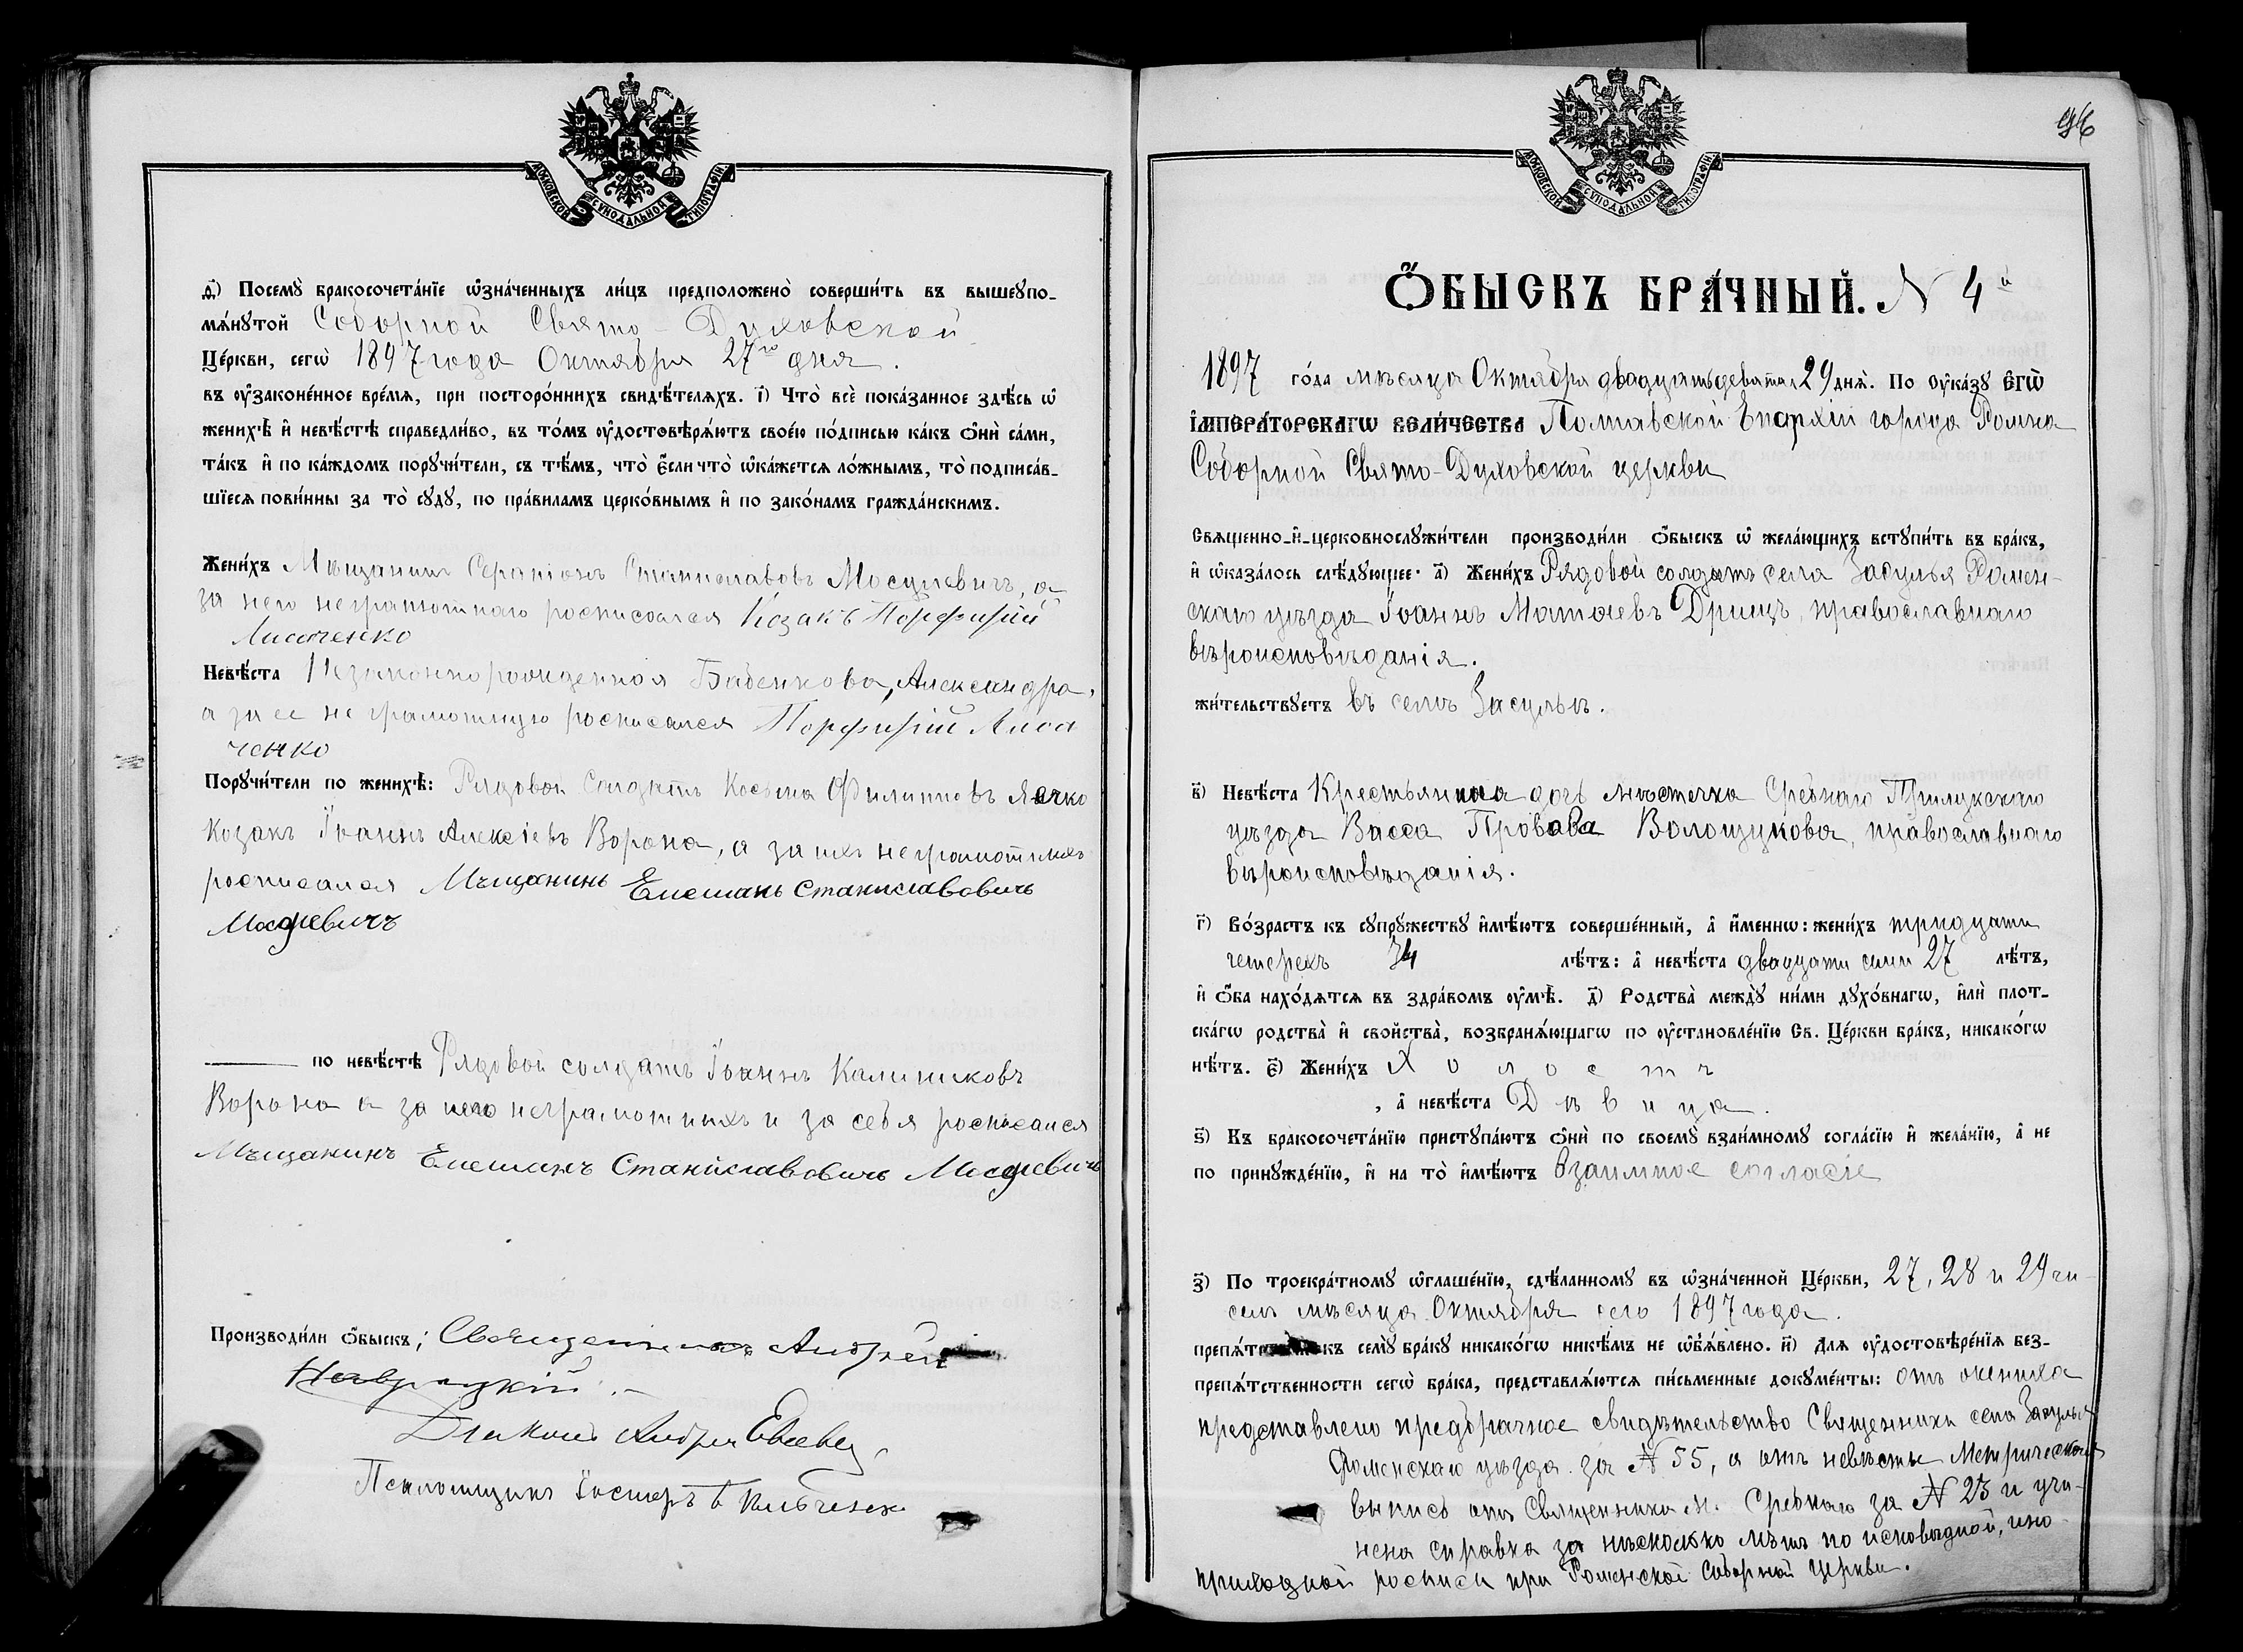 МОСКОВСКОЙ СѴНОДАЛЬНОЙ ТИПОГРАФІИ
ѳ҃) Посемꙋ̀ бракосочета́нїе ѡ҆зна́ченныхъ ли́цъ предположено̀ соверши́ть въ вышеꙋпо-
мѧ́нꙋтой Соборной Свято-Духовской
Це́ркви, сегѡ̀ 1897 года Октября 27го дня.
въ ᲂу҆зако́ненное вре́мѧ, при посторо́ннихъ свидѣ́телѧхъ. і҃) Что̀ всѐ пока́занное здѣ́сь ѡ҆
женихѣ̀ и҆ невѣ́стѣ справедли́во, въ то́мъ ᲂу҆достовѣрѧ́ютъ свое́ю по́дписью ка́къ ѻ҆нѝ са́ми,
та́къ и҆ по ка́ждомъ порꙋчи́тели, съ тѣ́мъ, что̀ є҆́сли что̀ ѡ҆ка́жетсѧ ло́жнымъ, то̀ подписа́в-
шїесѧ пови́нны за то̀ сꙋдꙋ̀, по пра́виламъ церко́внымъ и҆ по зако́намъ гражда́нскимъ.
Жени́хъ Мѣщанинъ Серапіонъ Станиславовъ Мосулевичъ, а
за него неграмотнаго росписался Козакъ Порфирій
Лисаченко
Невѣ́ста Незаконнорожденная Бабенкова, Александра,
а за ее не грамотную росписался Порфирій Лиса
ченко
Порꙋчи́тели по женихѣ̀: Рядовой Солдатъ Косьма Филипповъ Ячко
Козакъ Іоаннъ Алексіевъ Ворона, а за ихъ неграмотныхъ
росписался Мѣщанинъ Емельянъ Станиславовичъ
Мосулевичъ
по невѣ́стѣ Рядовой солдатъ Іоаннъ Калиниковъ
Ворона а за него неграмотныхъ и за себя росписался
Мѣщанинъ Емельянъ Станиславовичъ Мосулевичъ
Производи́ли ѻ҆́быскъ: Священникъ Андрей
Навроцкій.
Діаконъ Андрей
Псаломщикъ
МОСКОВСКОЙ СѴНОДАЛЬНОЙ ТИПОГРАФІИ
96
Ѻ҆́БЫСКЪ БРА́ЧНЫЙ. N 4й
1897 го́да мѣсяца Октября двадцать девятаго 29 днѧ̀. По ᲂу҆ка́зꙋ Є҆ГѠ̀
І҆МПЕРА́ТОРСКАГѠ ВЕЛИ́ЧЕСТВА Полтавской Епархіи города Ромна
Соборной Свято-Духовской церкви
Свѧще́нно-и҆-церковнослꙋжи́тели производи́ли ѻ҆́быскъ ѡ҆ жела́ющихъ встꙋпи́ть въ бра́къ,
и҆ ѡ҆каза́лось слѣ́дꙋющее: а҃) Жени́хъ Рядовой солдатъ села Засулья Ромен-
скаго уѣзда Іоаннъ Матѳеевъ Дрищъ, православнаго
вѣроисповѣданія.
жи́тельствꙋетъ въ селѣ Засульѣ.
в҃) Невѣ́ста Крестьянская дочь мѣстечка Сребнаго Прилукскаго
уѣзда Васса Провова Волощукова, православнаго
вѣроисповѣданія.
г҃) Во́зрастъ къ сꙋпрꙋ́жествꙋ и҆мѣ́ютъ соверше́нный, а҆ и҆́меннѡ: жени́хъ тридцати
четерехъ 34 лѣ́тъ: а҆ невѣ́ста двадцати семи 27 лѣ́тъ,
и҆ ѻ҆́ба нахо́дѧтсѧ въ здра́вомъ ᲂу҆мѣ̀. д҃) Родства̀ междꙋ̀ ни́ми дꙋхо́внагѡ, и҆лѝ плот-
ска́гѡ родства̀ и҆ свойства̀, возбранѧ́ющагѡ по ᲂу҆становле́нїю Св. Це́ркви бра́къ, никако́гѡ
нѣ́тъ. є҃) Жени́хъ Холостъ
, а҆ невѣ́ста Дѣвица.
ѕ҃) Къ бракосочета́нїю пристꙋпа́ютъ ѻ҆нѝ по своемꙋ̀ взаи́мномꙋ согла́сїю и҆ жела́нїю, а҆ не
по принꙋжде́нїю, и҆ на то̀ и҆мѣ́ютъ Взаимное согласіе
з҃) По троекра́тномꙋ ѡ҆глаше́нїю, сдѣ́ланномꙋ въ ѡ҆зна́ченной Це́ркви, 27, 28 и 29 чи-
селъ мѣсяца Октября сего 1897 года.
препѧ́т къ семꙋ̀ бра́кꙋ никако́гѡ никѣ́мъ не ѡ҆б̾ѧ́влено. и҃) Для ᲂу҆достовѣре́нїѧ без-
препѧ́тственности сегѡ̀ бра́ка, представлѧ́ютсѧ пи́сьменные докꙋме́нты: отъ жениха
представлено предбрачное свидѣтельство Священника села Засулья
Роменскаго уѣзда за N 55, а отъ невѣсты Метрическая
выпись отъ Священника м. Сребнаго за N 23 и учи-
нена справка за нѣсколько лѣтъ по исповѣдной, и по
приходной росписи при Роменской Соборной Церкви.